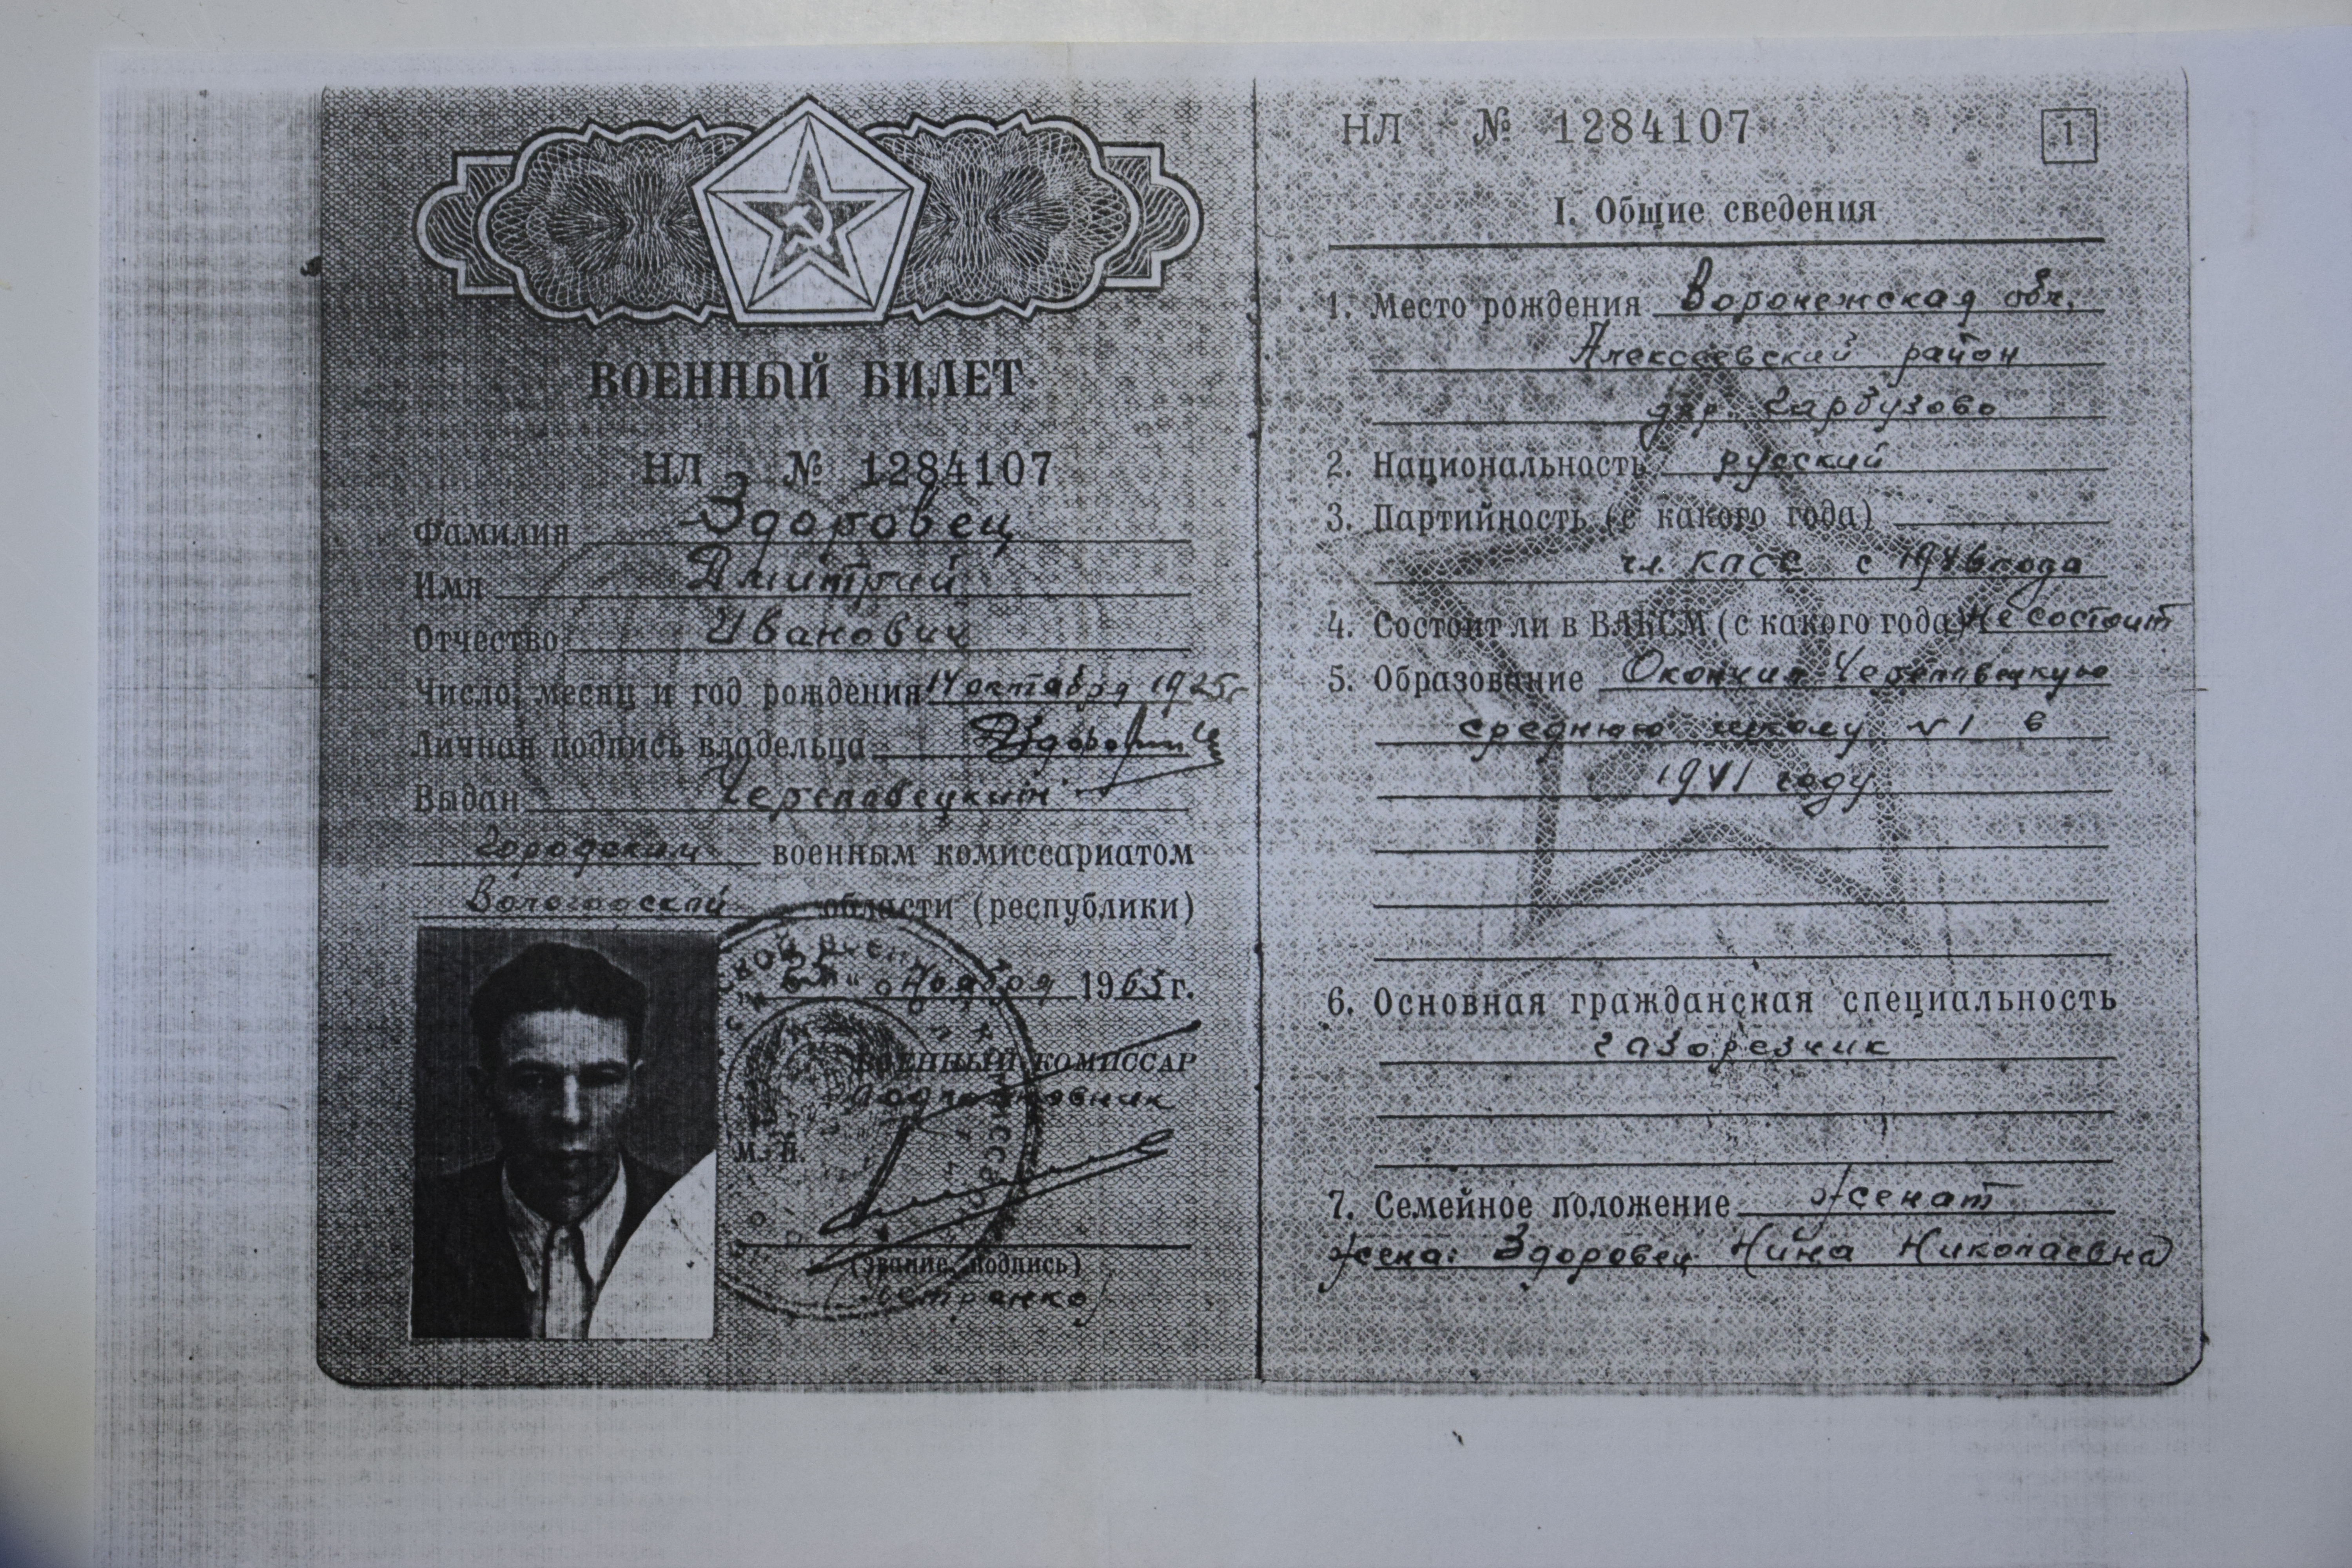 ВОЕННЫЙ БИЛЕТ
НЛ № 1284107
Фамилия Здоровец
Имя Дмитрий
Отчество Иванович
Число, месяц и год рождения 14 октября 1925г
Личная подпись владельца
Выдан Череповецким
Городским военным комиссариатом
Вологодской области (республики)
Ноября 1965г.
ВОЕННЫЙ КОМИССАР
Подполковник
М. П.
(звание, подпись)
(Петренко)
НЛ № 1284107
1
I. Общие сведения
1. Место рождения Воронежская обл.
Алексеевский район
дер. Гарбузово
2. Национальность русский
3. Партийность (с какого года)
чл. КПСС с 1946 года
4. Состоит ли в ВЛКСМ (с какого года) Не состоит
5. Образование Окончил Череповецкую
среднюю школу №1 в
1941 году
6. Основная гражданская специальность
газорезчик
7. Семейное положение женат
жена: Здоровец Нина Николаевна